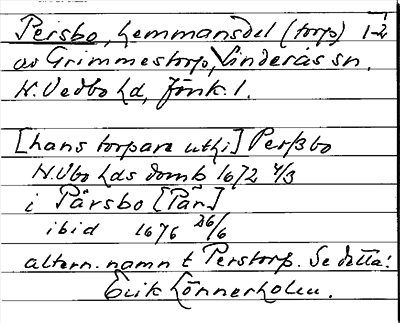 Persbo, hemmansdel (torp) 1-2
av Grimmestorp, Linderås sn,
N. Vedbo hd, Jönk. l.
[hans torpare uthi] Perßbo
N.Vbo hds domb 1672 4/3
i Pärsbo [Pär]
ibid 1676 26/6
altern. namn t Perstorp. Se detta!
Erik Lönnerholm.